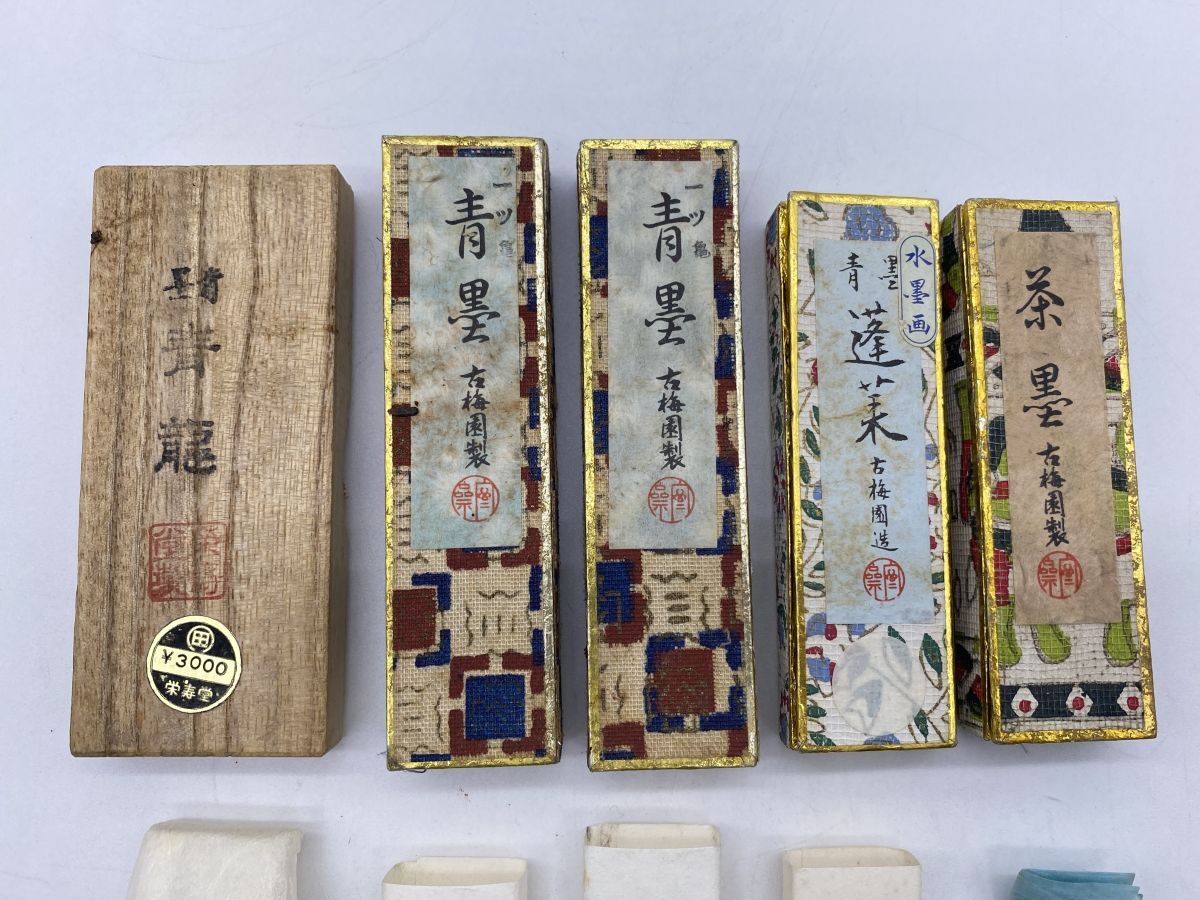 青龍
¥3000
栄寿堂
一ツ亀
青墨
古梅園製
一ツ亀
青墨
古梅園製
水墨画
青墨
蓬莱
古梅園造
茶墨
古梅園製